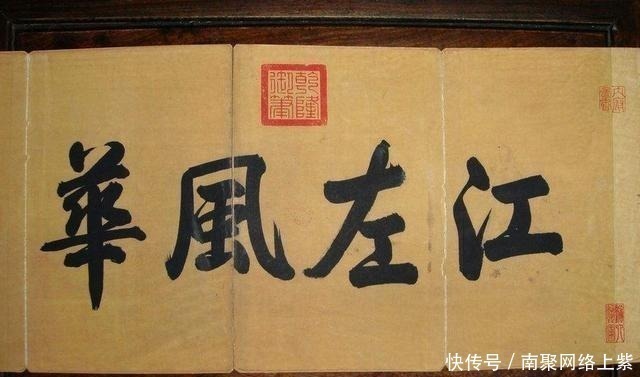 江左風華
乾隆御筆
快传号/南聚网络上紫